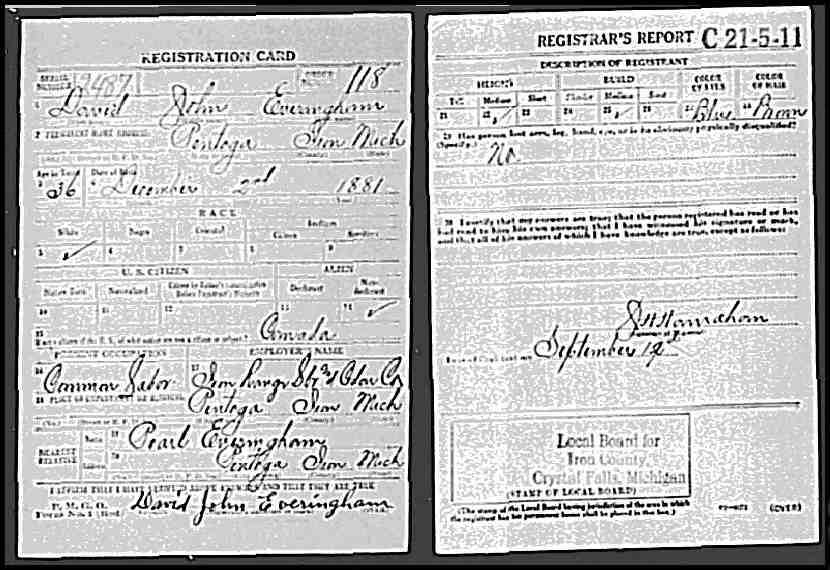 REGISTRATION CARD
SERIAL NUMBER 2487 ORDER 118
1 David John Everingham
2 PERMANENT HOME ADDRESS
Pentoga Iron Mich
Age in Years Date of Birth
3 36 4 December 2nd 1881
RACE
White Negro Oriental Indian
Citizen
5 ✓ 6 7 8 9
U. S. CITIZEN ALIEN
Native Born Naturalized Citizen by Father's Naturalization Declarant Non-declarant
10 11 12 13 14 ✓
15
If not a citizen of the U. S., of what nation are you a citizen or subject? Canada
PRESENT OCCUPATION EMPLOYER'S NAME
16 Common Labor 17 Iron Range
18 PLACE OF EMPLOYMENT OR BUSINESS
Pentoga Iron Mich
NEAREST RELATIVE Name 19 Pearl Everingham
Address 20 Pentoga Iron Mich
I AFFIRM THAT I HAVE VERIFIED ABOVE ANSWERS AND THAT THEY ARE TRUE
P. M. G. O.
Form No. 1 (Red) David John Everingham
REGISTRAR'S REPORT C 21-5-11
DESCRIPTION OF REGISTRANT
HEIGHT BUILD COLOR OF EYES COLOR OF HAIR
Tall Medium Short Slender Medium Stout
21 22 ✓ 23 24 25 ✓ 26 27 Blue 28 Brown
29 Has person lost arm, leg, hand, eye, or is he obviously physically disqualified?
(Specify.) No.
30 I certify that my answers are true; that the person registered has read or has
had read to him his own answers; that I have witnessed his signature or mark,
and that all of his answers of which I have knowledge are true, except as follows:
Date of Registration September 12
Local Board for
Iron County
Crystal Falls, Michigan
(STAMP OF LOCAL BOARD)
(The stamp of the Local Board having jurisdiction of the area in which
the registrant has his permanent home shall be placed in this box.) (OVER)